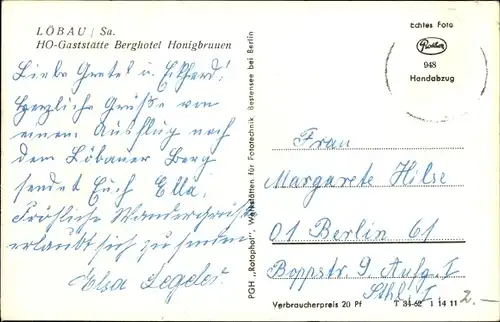 LÖBAU / Sa.
HO-Gaststätte Berghotel Honigbrunnen
Liebe Gretel u. Eckhard!
Herzliche Grüße von
einem Ausflug nach
dem Löbauer Berg
sendet Euch Ella!
Fröhliche Wandergrüße
erlaubt sich zu senden
Elsa
PGH „Rotophot", Werkstätten für Fototechnik, Bestensee bei Berlin
Echtes Foto
948
Handabzug
Frau
Margarete Hilse
01 Berlin 61
Boppstr. 9 Aufg. I
Sthl. I
Verbraucherpreis 20 Pf T 84-62 1 14 11
2.-